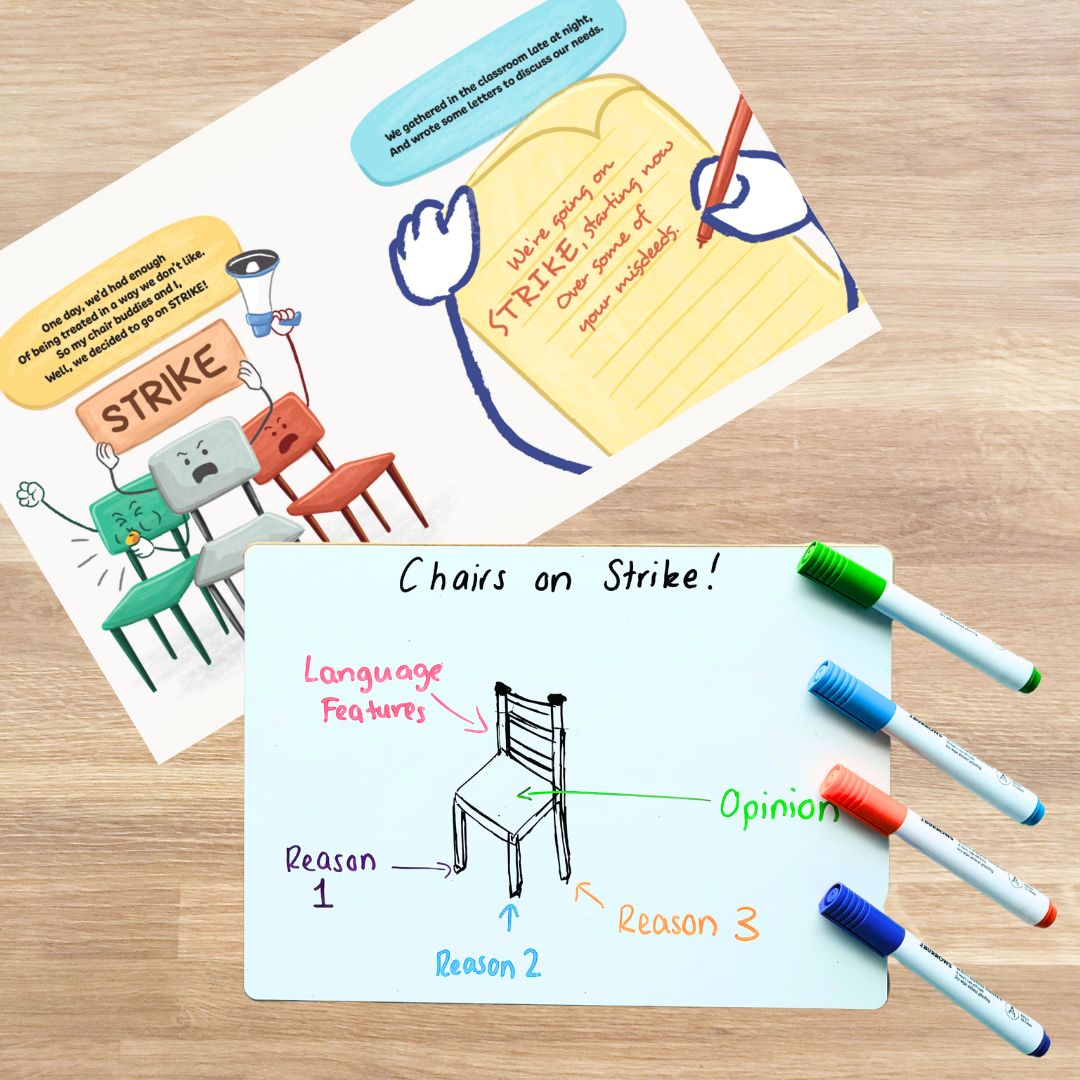 We gathered in the classroom late at night,
And wrote some letters to discuss our needs.
We're going on
STRIKE, starting now
Over some of
your misdeeds.
One day, we'd had enough
Of being treated in a way we don't like.
So my chair buddies and I,
Well, we decided to go on STRIKE!
STRIKE
Chairs on Strike!
Language
Features
Opinion
Reason
1
Reason 2
Reason 3